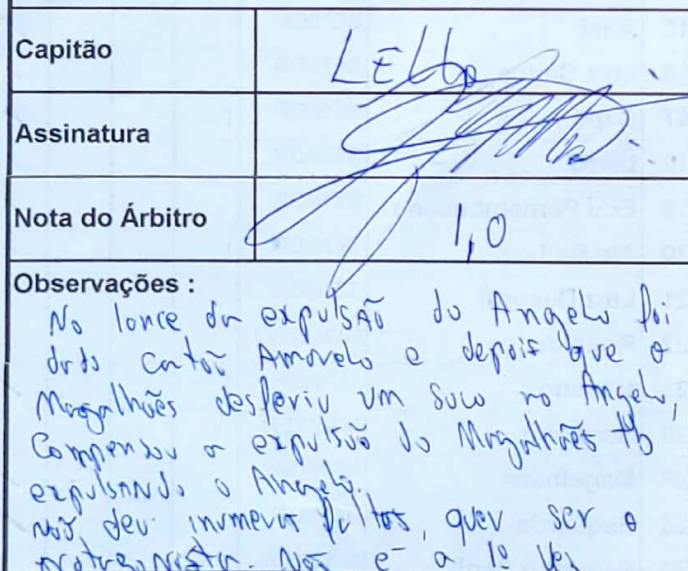 Capitão
LELLO
Assinatura
Nota do Árbitro
1,0
Observações :
No lance da expulsão do Angelo foi
dado cartão Amarelo e depois que o
Magalhães desferiu um soco no Angelo,
Compensou a expulsão do Magalhães tb
expulsando o Angelo.
não, deu inumeras faltas, quer ser o
protagonista. Não é a 1º vez